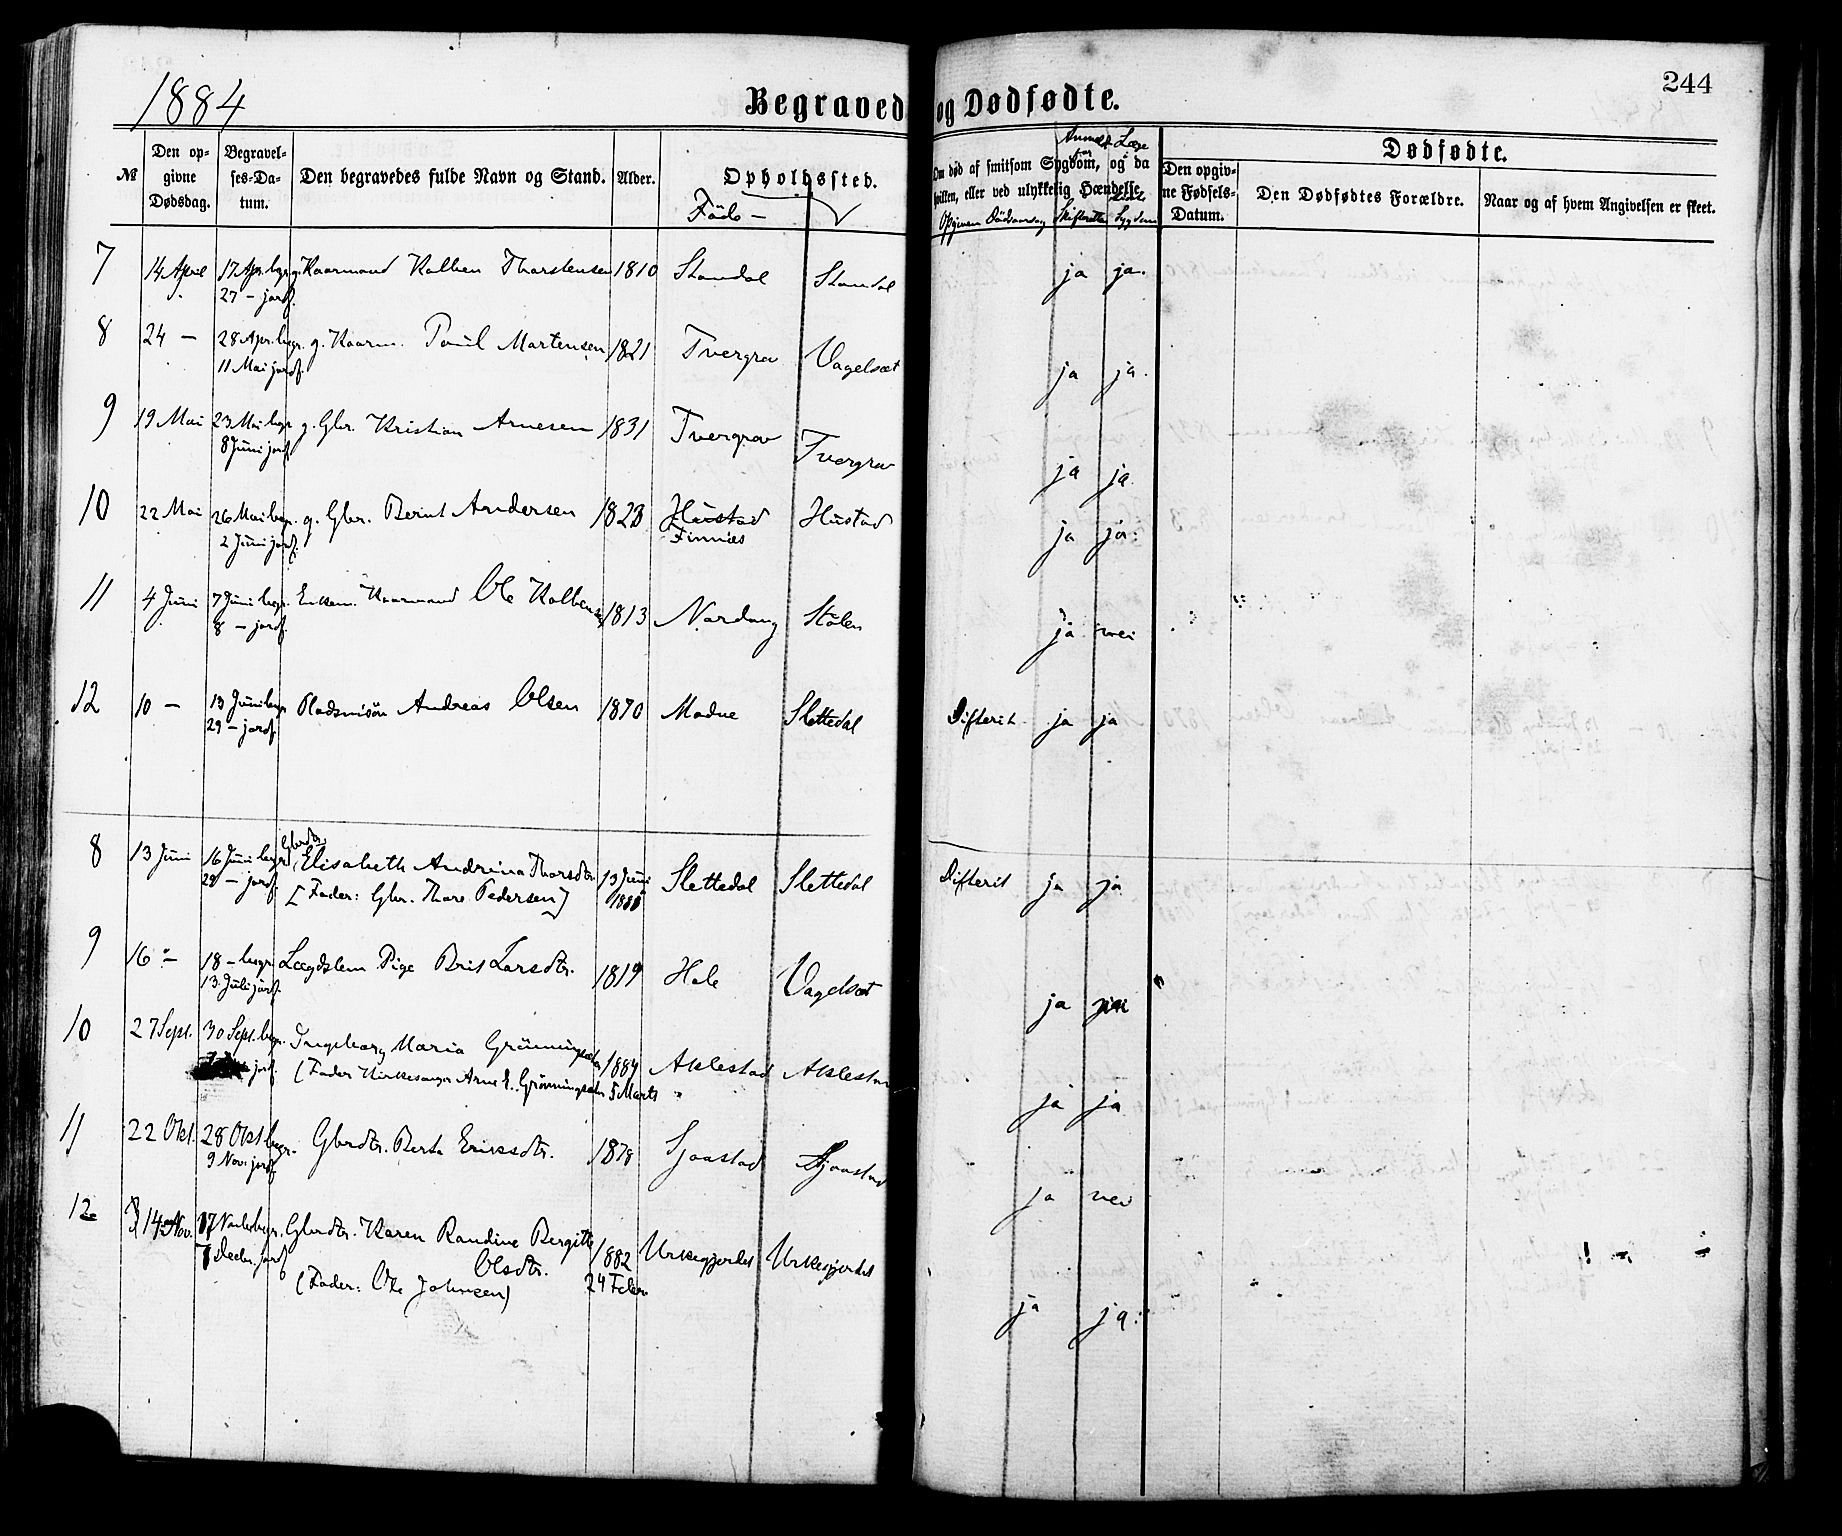 1884
Begravede og Dødfødte.
244
№ Den opgivne Dødsdag. Begravelses-Datum. Den begravedes fulde Navn og Stand. Alder. Opholdssted. Om død af smitsom Sygdom, og da hvilken, eller ved ulykkelig Hændelse. Dødfødte.
Den opgivne Fødsels-Datum. Den Dødfødtes Forældre. Naar og af hvem Angivelsen er skeet.
Föde-
Opgiven Dödsaarsag Skifteretten Sygdom
7 14 April 17 Apr. begr. g. Kaarmand Kolben Thorstensen 1810 Standal Standal ja ja.
27 – jordf.
8 24 – 28 Apr. begr. g. Kaarm. Poul Martensen 1821 Tvergrov Vagelsæt ja ja.
11 Mai jordf.
9 19 Mai 23 Mai begr. g. Gbr. Kristian Arnesen 1831 Tvergrov Tvergrov ja ja.
8 Juni jordf.
10 22 Mai 26 Mai begr. g. Gbr. Bernt Andersen 1823 Hustad Hustad ja ja.
2 Juni jordf. Finnæs
11 4 Juni 7 Juni begr. Enkem. Kaarmand Ole Kolbens. 1813 Nordang Stölen ja nei
8 – jordf.
12 10 – 13 Juni begr. Pladsmisön Andreas Olsen 1870 Modne Slettedal Difterit ja ja
29 – jordf.
8 13 Juni 16 Juni begr. Gbrdtr. Elisabeth Andrina Thorsdtr. 13 Juni Slettedal Slettedal Difterit ja ja
29 – jordf. [Fader: Gbr. Thore Pedersen]
9 16 – 18 – begr. Lægdslem Pige Brit Larsdtr. 1819 Hole Vagelsæt ja
13 Juli jordf.
10 27 Sept. 30 Sept. begr. Ingeborg Maria Grönningsæter 1884 Aklestad Aklestad ja ja
jordf. (Fader Kirkesanger Arne E. Grönningsæter 5 Marts "
11 22 Okt. 28 Okt begr. Gbrdtr. Berta Eriksdtr. 1878 Sjaastad Sjaastad ja nei
9 Nov. jordf.
12 14 Nov. 17 Novbr begr. Gbrdtr. Karen Randine Bergitte 1882 Urkegjerdet Urkegjerdet ja ja.
7 Decbr. jordf Olsdtr.
(Fader: Ole Johnsen) 24 Febr.